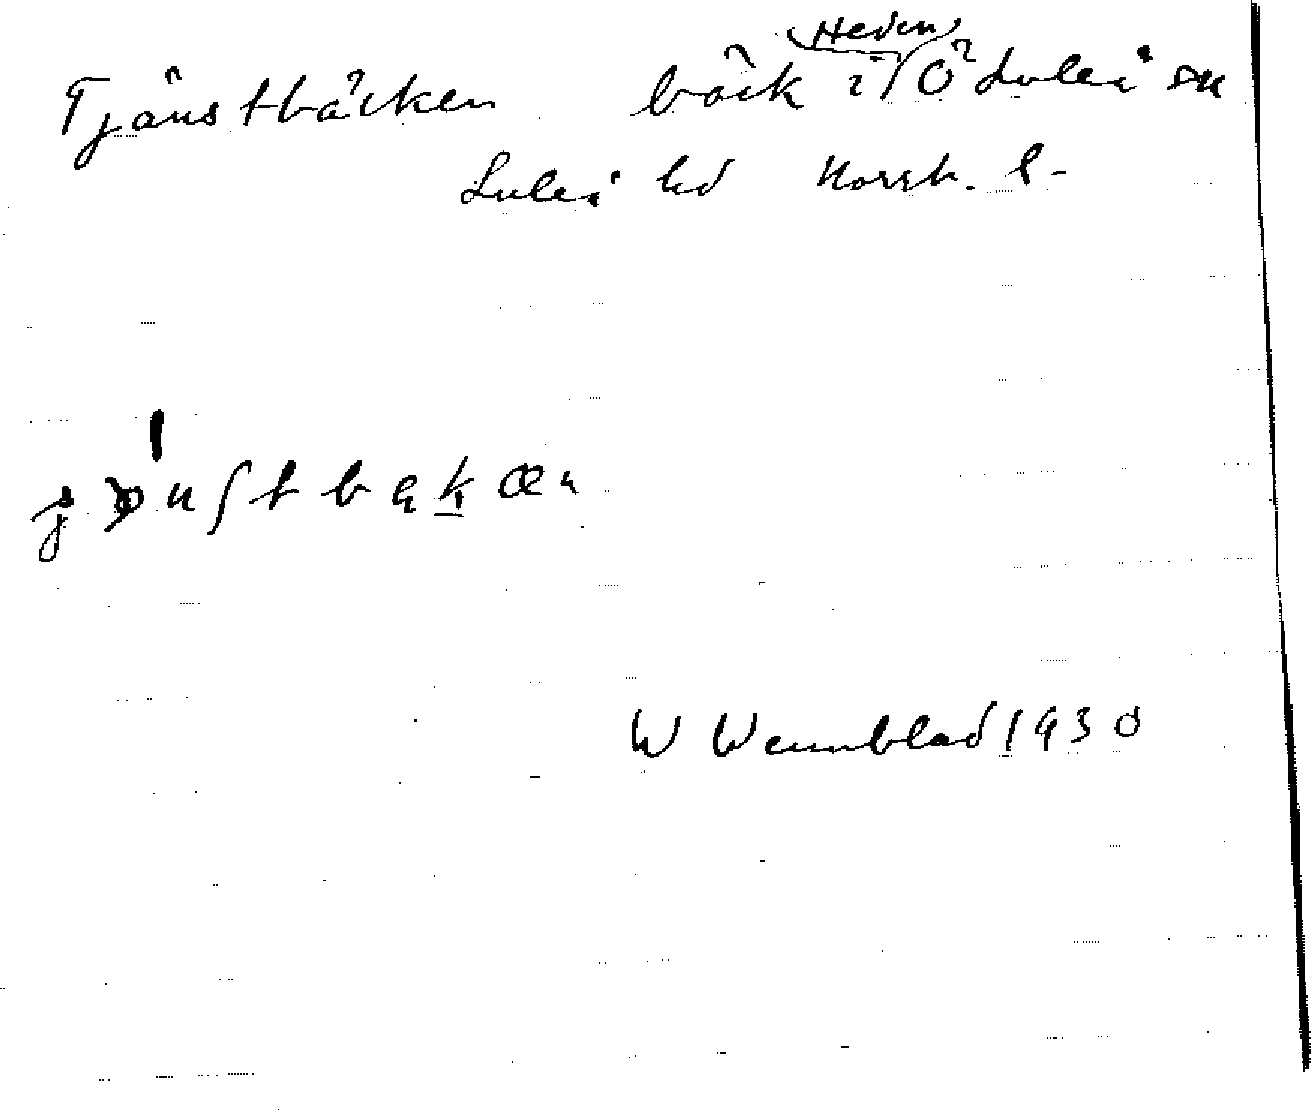 Heden
Tjänstbäcken bäck i Ö Luleå sn
Luleå hd Norrb. l.
W Wennblad 1930